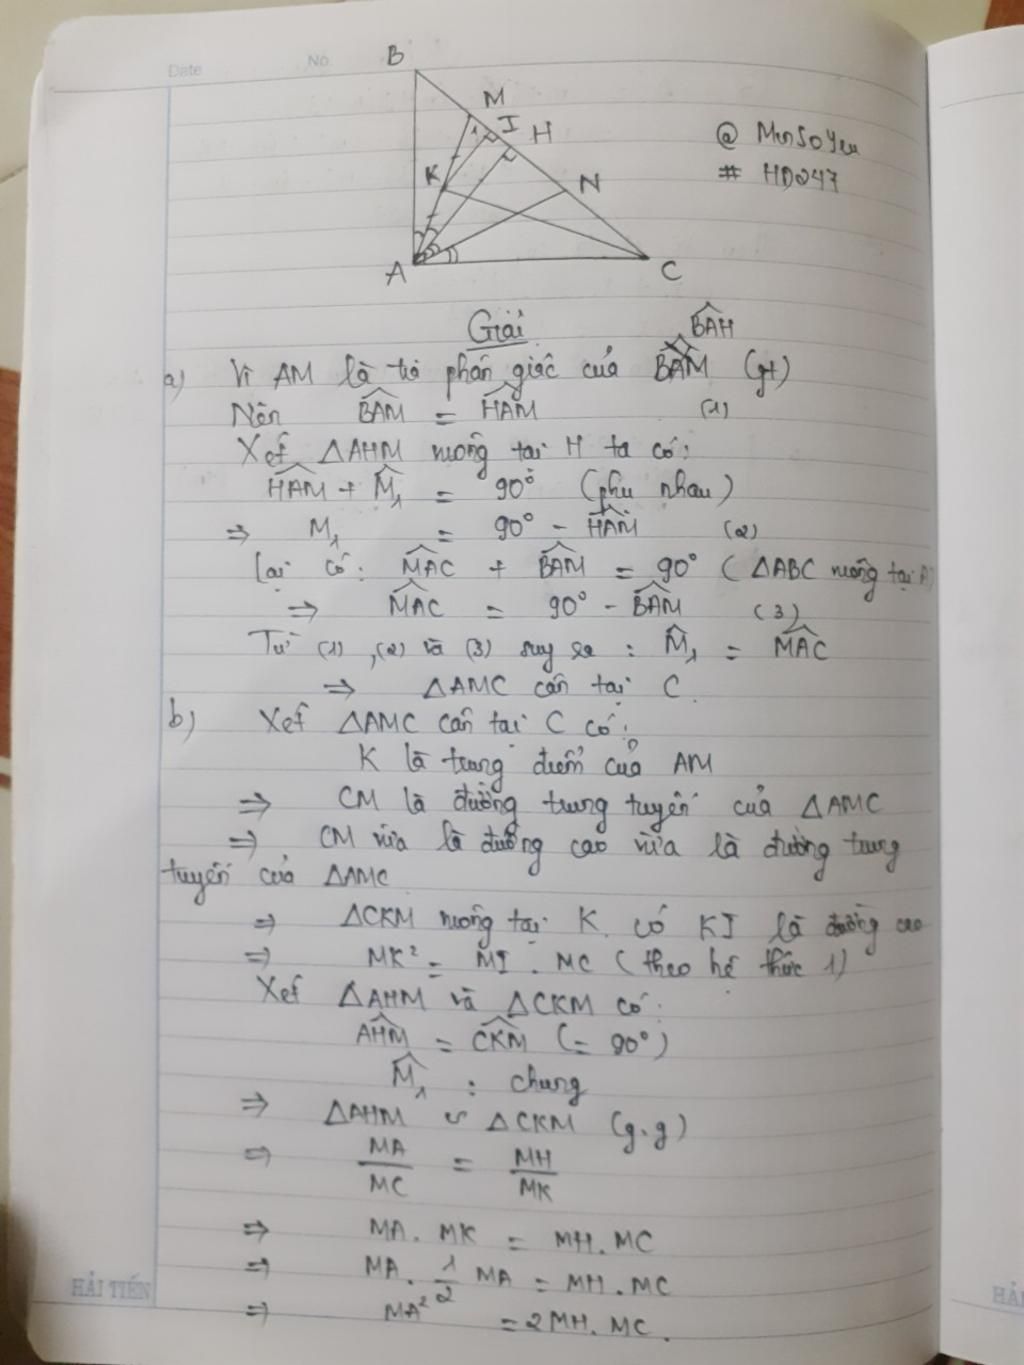 Date No.
B
M
I H
@ MinSoYeu
# HD247
K
N
1
A
C
Giải
BAH
a) Vì AM là tia phân giác của BAM (gt)
Nên BAM = HAM (1)
Xét △AHM vuông tại H ta có:
HAM + M₁ = 90° (phụ nhau)
⇒ M₁ = 90° - HAM (2)
Lại có: MAC + BAM = 90° (△ABC vuông tại A)
⇒ MAC = 90° - BAM (3)
Từ (1), (2) và (3) suy ra: M₁ = MAC
⇒ △AMC cân tại C.
b) Xét △AMC cân tại C có:
K là trung điểm của AM
⇒ CM là đường trung tuyến của △AMC
⇒ CM vừa là đường cao vừa là đường trung
tuyến của △AMC
⇒ △CKM vuông tại K có KI là đường cao
⇒ MK² = MI . MC (theo hệ thức 1)
Xét △AHM và △CKM có:
AHM = CKM (= 90°)
M₁ : chung
⇒ △AHM ∽ △CKM (g.g)
⇒ MA/MC = MH/MK
⇒ MA. MK = MH. MC
⇒ MA. 1/2 MA = MH. MC
⇒ MA² = 2MH. MC.
HẢI TIẾN
HẢI